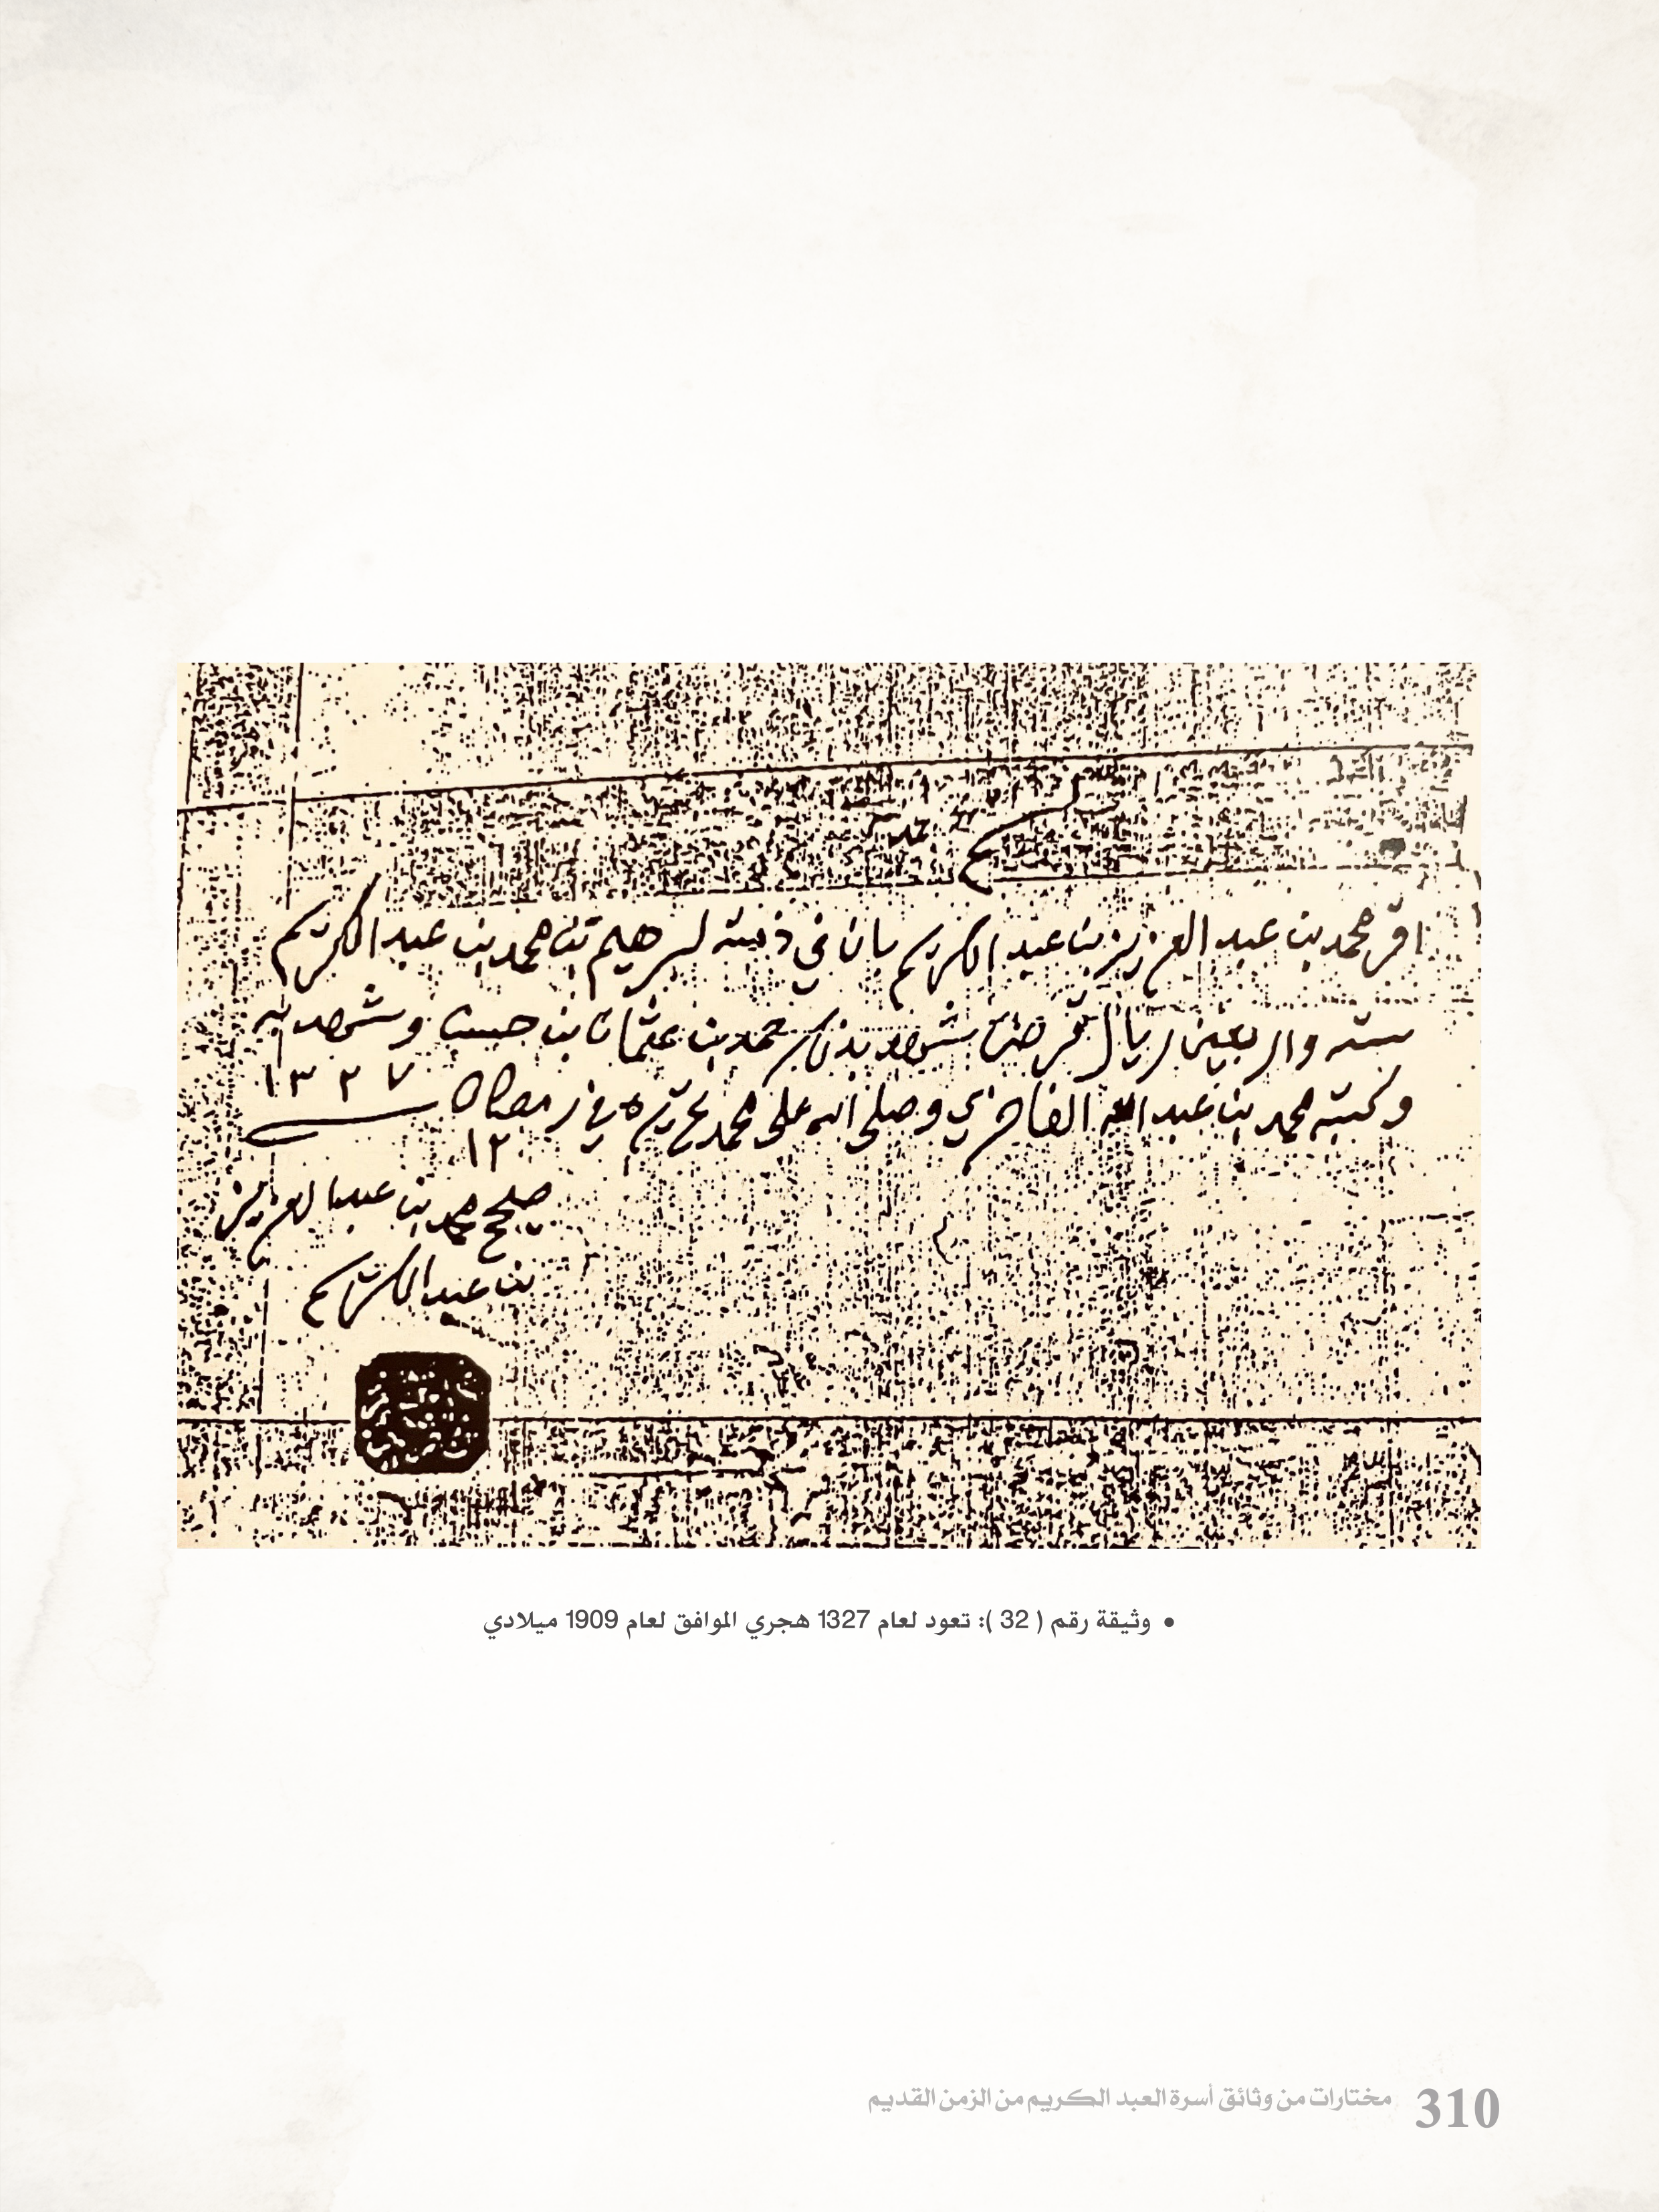 اقر محمد بن عبد العزيز بن عبد الكريم بان في ذمته لبرهيم بن محمد بن عبد الكريم
سته واربعين ريال قرضن شهد بذلك حمد بن عثمان بن وشهد به
وكتبه محمد بن عبد الله الفاخري وصلى الله على محمد في رمضان ١٣٢٧
١٢
صحيح محمد بن عبد العزيز
بن عبد الكريم
• وثيقة رقم ( 32 ): تعود لعام 1327 هجري الموافق لعام 1909 ميلادي
310 مختارات من وثائق أسرة العبد الكريم من الزمن القديم